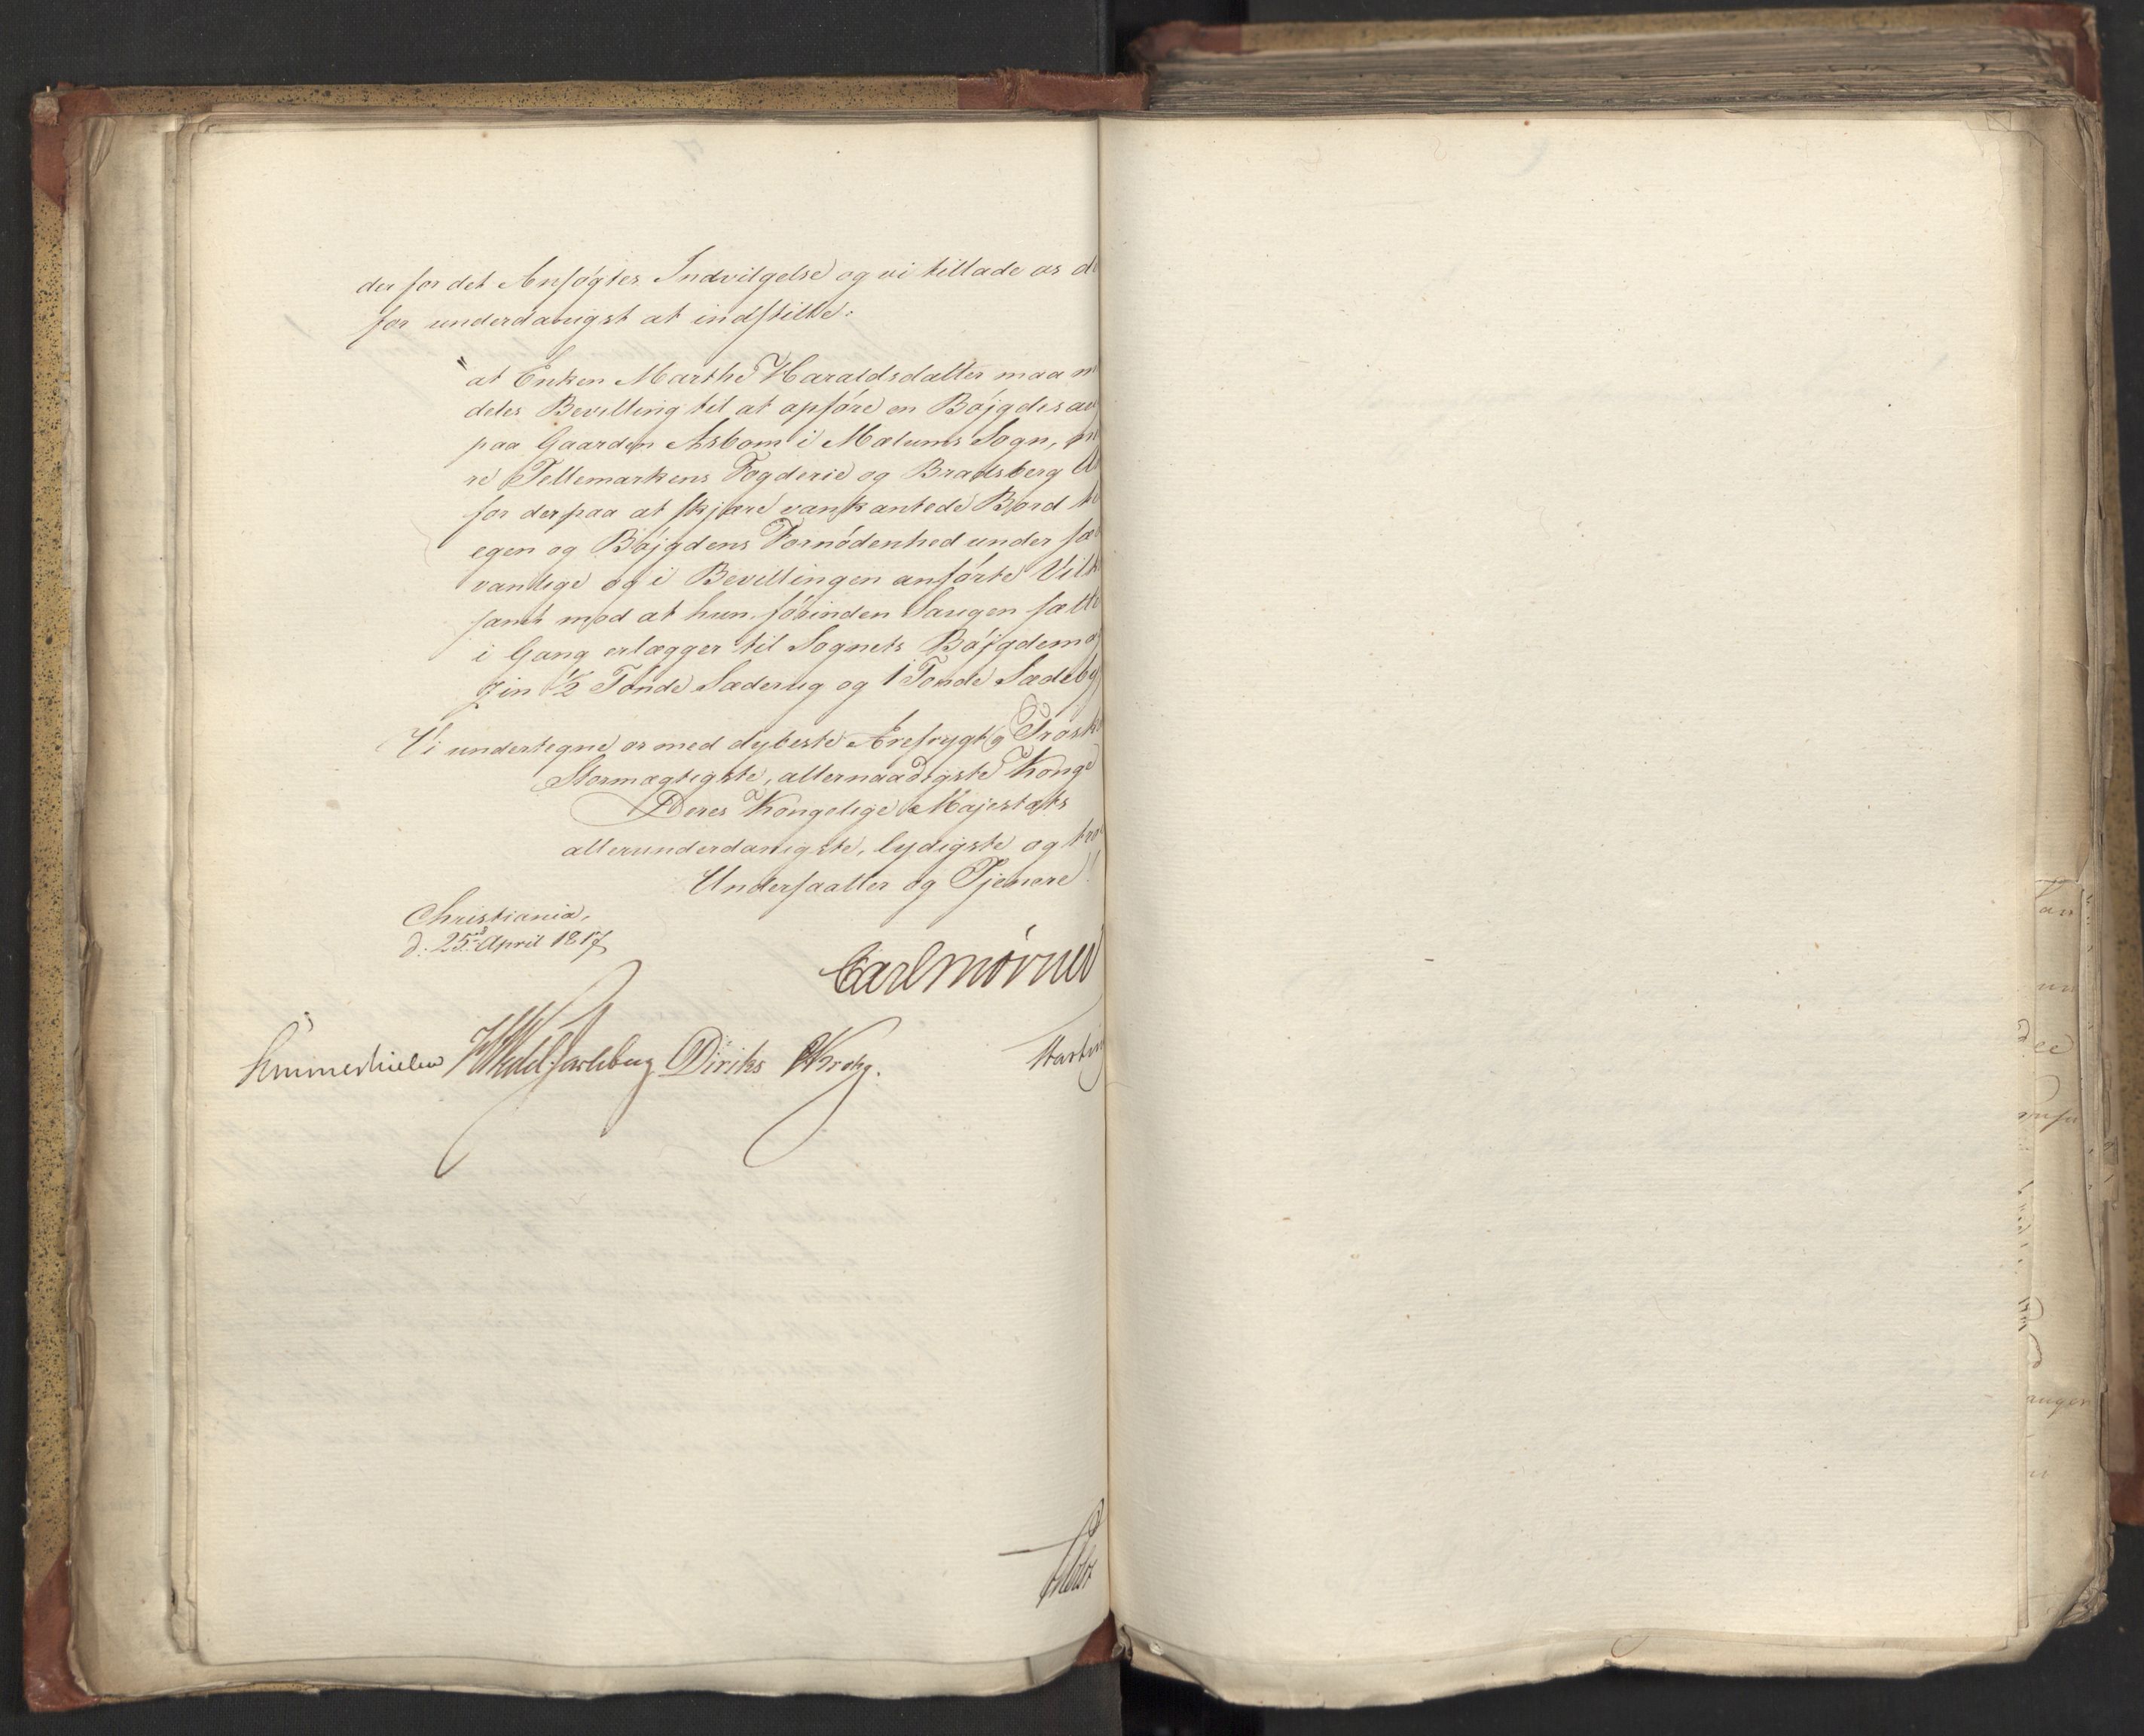 der for det Ansøgtes Indvilgelse og vi tillade os de
for underdanigst at indstille:
"at Enken Marthe Haraldsdatter maa m
deles Bevilling til at opføre en Bøjgdesau
paa Gaarden Asbom i Mælums Sogn, n
re Tellemarkens Fogderie og Bradsberg A
for derpaa at skjære vankantede Bord ti
egen og Bøjgdens Fornødenhed under sæ
vanlige og i Bevillingen anførte Vilk
samt mod at hun, førinden Saugen sætte
i Gang erlægger til Sognets Bøjgdema
zin 1/2 Tønde Sæderug og 1 Tønde Sædeby
Vi undertegne os med dybeste Ærefrygt og Trosk
Stormægtigste, allernaadigste Konge
Deres Kongelige Majestæts
allerunderdanigste, lydigste og tro
Undersaatter og Tjenere!
Christiania,
d. 25de April 1817
Carl Mörner
Sommerhielm HWedel Jarlsberg Diriks Krohg.